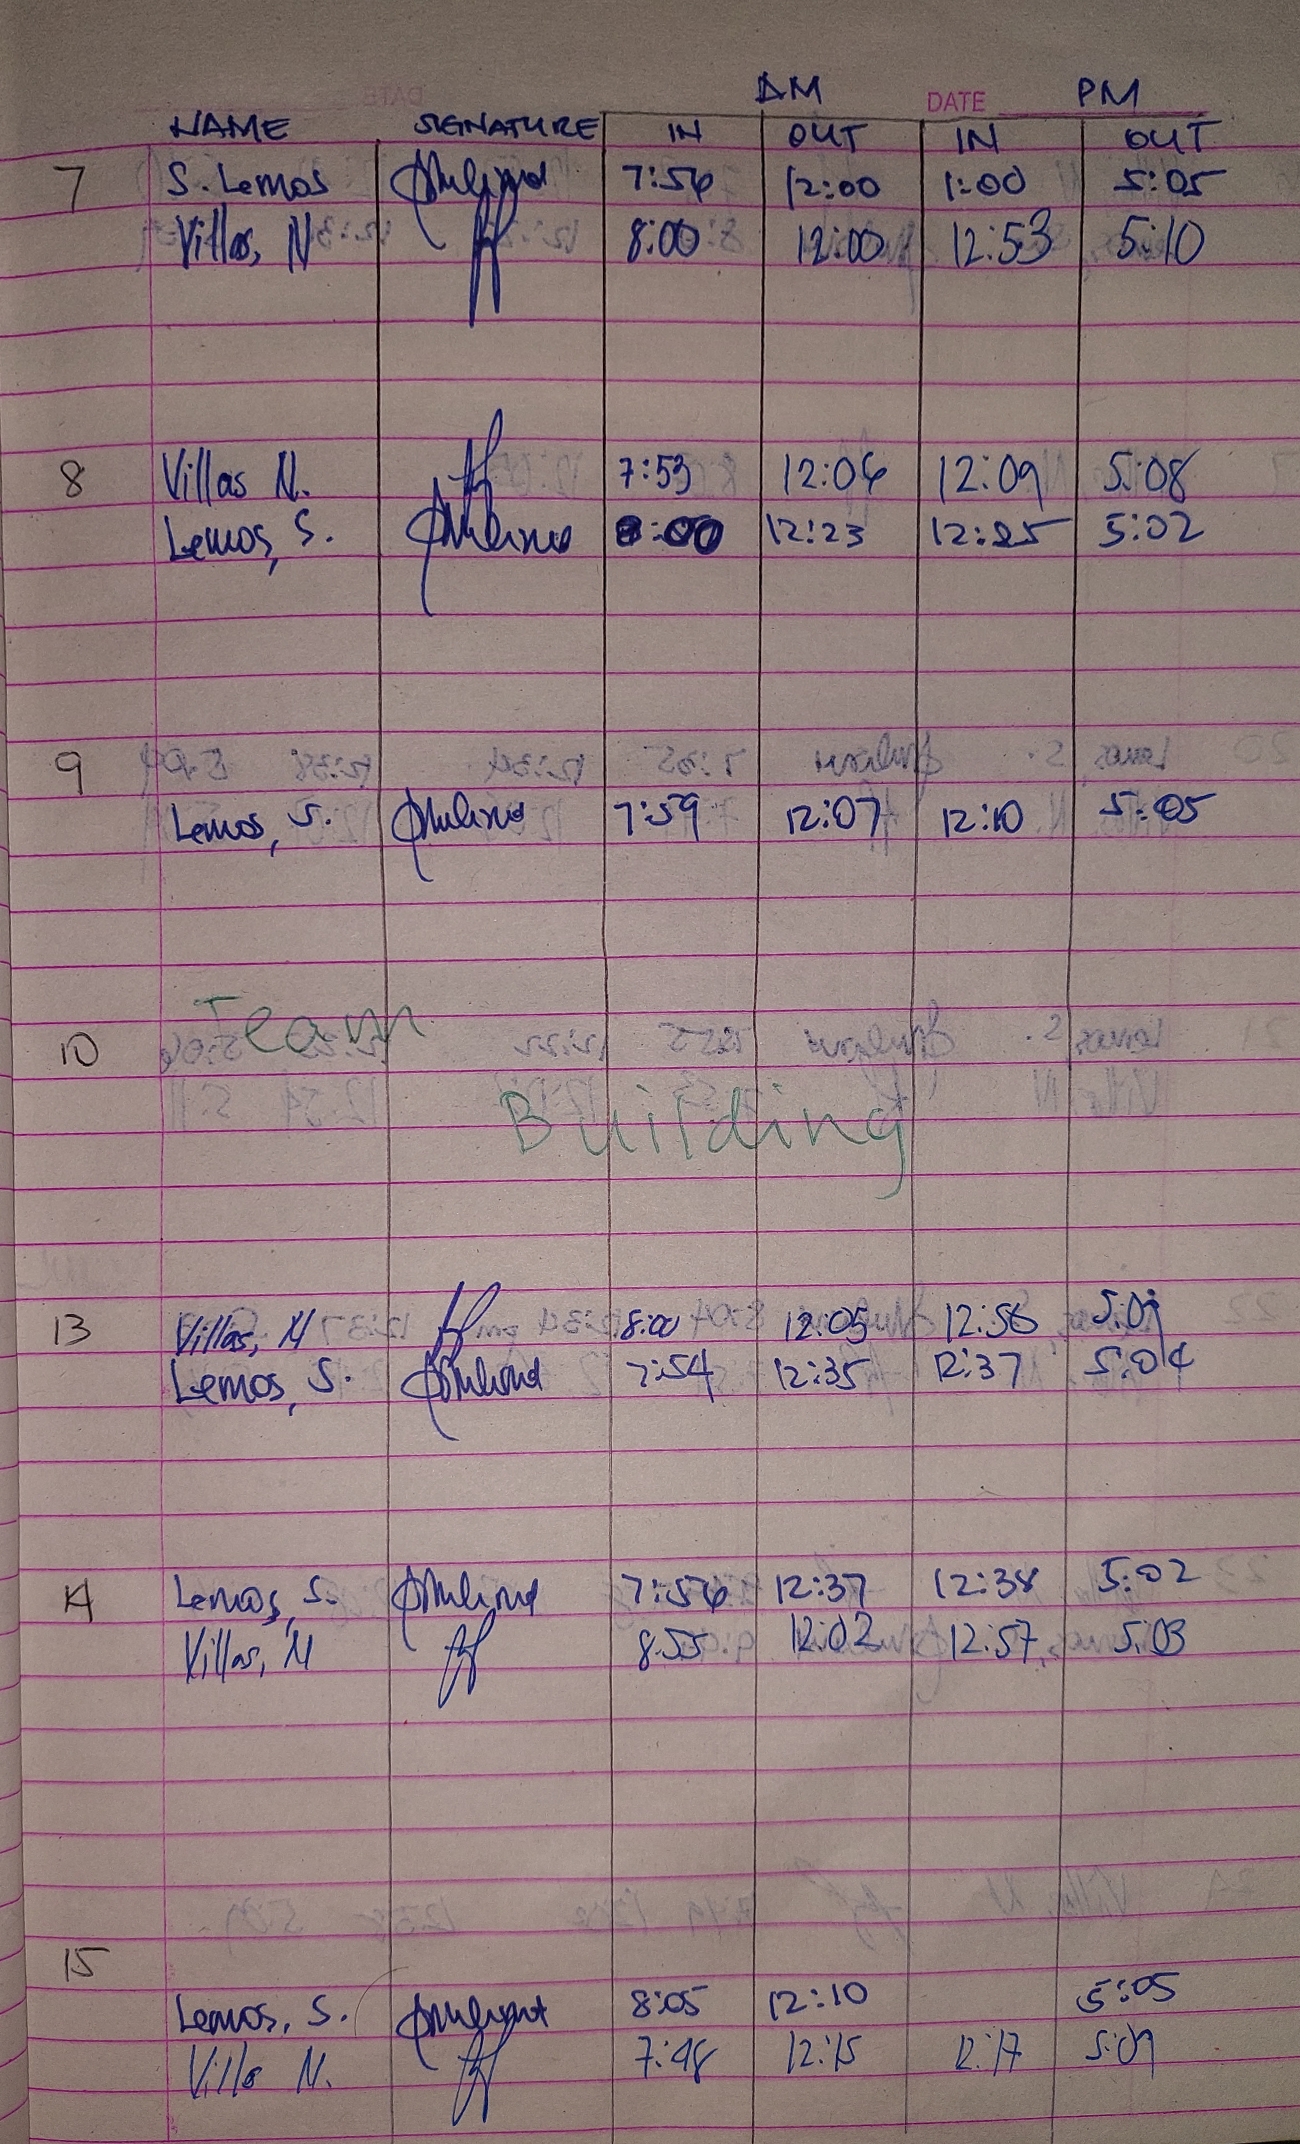 AM DATE PM
NAME SIGNATURE IN OUT IN OUT
7 S. Lemos 7:56 12:00 1:00 5:05
Villas, N 8:00 12:00 12:53 5:10
8 Villas N. 7:53 12:06 12:09 5:08
Lemos, S. 8:00 12:23 12:25 5:02
9
Lemos, S. 7:59 12:07 12:10 5:05
Team
10
Building
13 Villas, N 8:00 12:05 12:56
Lemos, S. 7:54 12:35 12:37 5:04
14 Lemos, S. 7:56 12:37 12:38 5:02
Villas, N 8:55 12:02 12:57 5:03
15
Lemos, S. 8:05 12:10 5:05
Villa N. 7:48 12:15 12:17 5:09